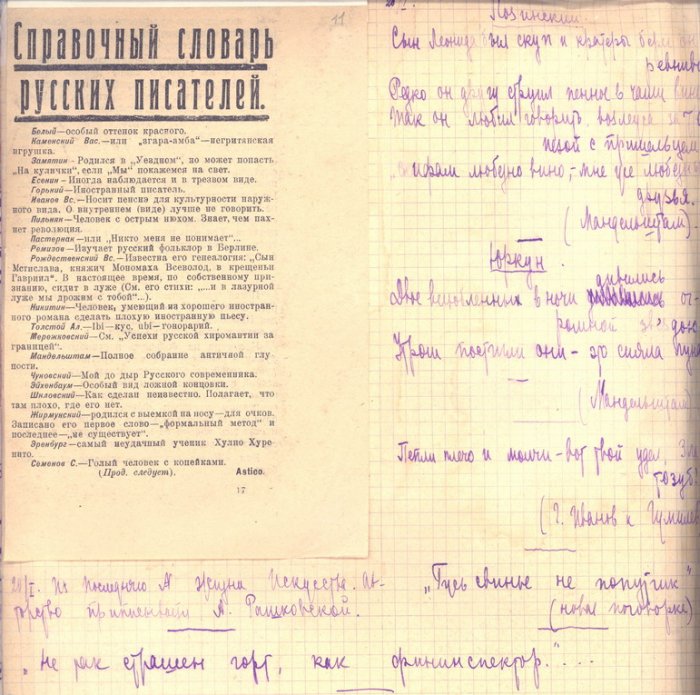 11
Справочный словарь
русских писателей.
Белый—особый оттенок красного.
Каменский Вас.—или „згара-амба“—негритянская
игрушка.
Замятин - Родился в „Уездном“, но может попасть
„На кулички“, если „Мы“ покажемся на свет.
Есенин - Иногда наблюдается и в трезвом виде.
Горький—Иностранный писатель.
Иванов Вс.—Носит пенснэ для культурности наруж-
ного вида. О внутреннем (виде) лучше не говорить.
Пильняк—Человек с острым нюхом. Знает, чем пах-
нет революция.
Пастернак—или „Никто меня не понимает“...
Ремизов—Изучает русский фольклор в Берлине.
Рождественский Вс.—Известна его генеалогия: „Сын
Мстислава, княжич Мономаха Всеволод, в крещеньи
Гавриил“. В настоящее время, по собственному при-
знанию, сидит в луже (См. его стихи: „...и в лазурной
луже мы дрожим с тобой“...).
Никитин—Человек, умеющий из хорошего иностран-
ного романа сделать плохую иностранную пьесу.
Толстой Ал.—Ibi—кус, ubi—гонорарий.
Мережковский—См. „Успехи русской хиромантии за
границей“.
Мандельштам—Полное собрание античной глу-
пости.
Чуковский—Мой до дыр Русского современника.
Эйхенбаум—Особый вид ложной концовки.
Шкловский—Как сделан неизвестно. Полагает, что
там плохо, где его нет.
Жирмунский—родился с выемкой на носу—для очков.
Записано его первое слово—„формальный метод“ и
последнее—„не существует“.
Эренбург—самый неудачный ученик Хулио Хуре-
нито.
Семенов С.—Голый человек с копейками.
(Прод. следует). Astico.
17
Лозинский
Сын Леонида был скуп и кратеры берег он
ревниво
Редко он другу струил пенное в чаши вино
Так он любил говорить возлежа за
с пришельцем
любезно вино,- мне же любезны
друзья.
(Мандельштам)
Юркун.
дивились
Двое влюбленных в ночи ог-
ромной звездою
они - это сияла луна
(Мандельштам)
Пепли плечо и молчи - вот твой удел, Зла-
тозуб.
(Г. Иванов к Гумилев
20/I. Из последнего № Жизни Искусства. Ав-
торство приписывали А. Рашковской.
„Гусь свинье не попутчик“
(новая поговорка)
„Не так страшен чорт, как фининспектор.“...